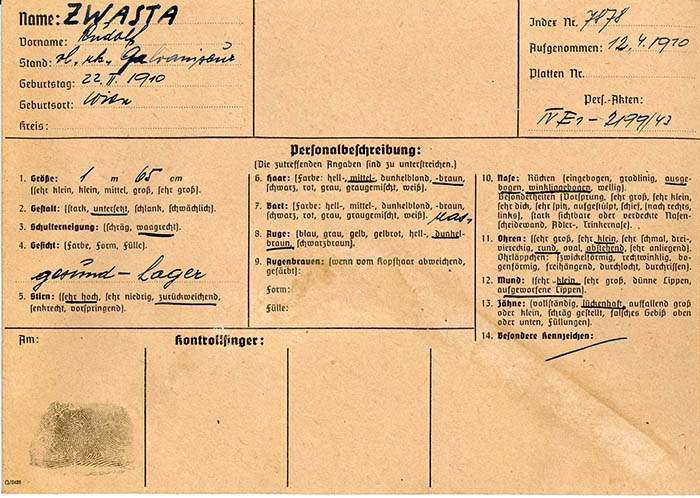 Name: ZWASTA
Vorname: Rudolf
Stand: vl., rk., Galvaniseur
Geburtstag: 22. II. 1910
Geburtsort: Wien
Kreis:
Index Nr. 7878
Aufgenommen: 12. 4. 1910
Platten Nr.
Pers.-Akten:
IV E 1 - 2199/43
Personalbeschreibung:
(Die zutreffenden Angaben sind zu unterstreichen.)
1. Größe: 1 m 65 cm
(sehr klein, klein, mittel, groß, sehr groß).
2. Gestalt: (stark, untersetzt, schlank, schwächlich).
3. Schulterneigung: (schräg, waagrecht).
4. Gesicht: (Farbe, Form, Fülle).
gesund - Lager
5. Stirn: (sehr hoch, sehr niedrig, zurückweichend,
senkrecht, vorspringend).
6. Haar: (Farbe: hell-, mittel-, dunkelblond, -braun,
schwarz, rot, grau, graugemischt, weiß).
7. Bart: (Farbe: hell-, mittel-, dunkelblond, -braun,
schwarz, rot, grau, graugemischt, weiß). Ras.
8. Auge: (blau, grau, gelb, gelbrot, hell-, dunkel-
braun, schwarzbraun).
9. Augenbrauen: (wenn vom Kopfhaar abweichend,
gefärbt):
Form:
Fülle:
10. Nase: Rücken (eingebogen, gradlinig, ausge-
bogen, winkliggebogen, wellig).
Besonderheiten (Vorsprung, sehr groß, sehr klein,
sehr dick, sehr spitz, aufgestülpt, schief, (nach rechts,
links), stark sichtbare oder verdeckte Nasen-
scheidewand, Adler-, Trinkernase).
11. Ohren: (sehr groß, sehr klein, sehr schmal, drei-,
viereckig, rund, oval, abstehend, sehr anliegend).
Ohrläppchen: (zwickelförmig, rechtwinklig, bo-
genförmig, freihängend, durchlocht, durchrissen).
12. Mund: (sehr klein, sehr groß, dünne Lippen,
aufgeworfene Lippen).
13. Zähne: (vollständig, lückenhaft, auffallend groß
oder klein, schräg gestellt, falsches Gebiß oben
oder unten, Füllungen).
14. Besondere Kennzeichen:
Am:
Kontrollfinger: